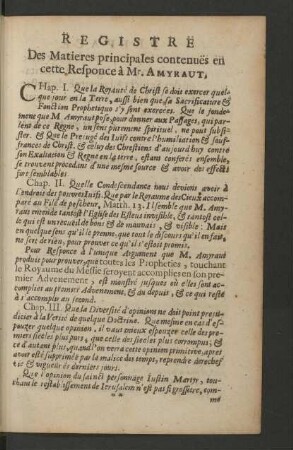 REGISTRE
Des Matieres principales contenuës en
cette Responce à Mr. AMYRAUT,
CHap. I. Que la Royauté de Christ se doit exercer quel-
que jour en la Terre, aussi bien que sa Sacrificature &
Fonction Prophetique s'y sont exercées. Que le fonde-
ment que M Amyraut pose pour donner aux Passages, qui par-
lent de ce Regne, un sens purement spirituel, ne peut subsi-
ster. & Que le Prejugé des Juifs contre l'humiliation & souf-
frances de Christ, & celuy des Chrestiens d'aujourdhuy contre
son Exaltation & Regne en la terre, estans conferés ensemble,
se trouvent procedans d'une mesme source & avoir des effects
fort semblables.
Chap. II. Quelle Condescendante nous devions avoir à
l'endroit des pauvres Juifs. Que par le Royaume des Cieux accom-
paré au Filé de pescheur, Match. 13. il semble que M. Amy-
raut entende tantost l'Eglise des Esleus invisible, & tantost cel-
le qui est un recueil de bons & de mauvais, & visible: Mais
en quelque sens qu'il le prenne, que tout le discours qu'il en fait,
ne sert de rien, pour prouver ce qu'il s'estoit promis.
Pour Responce à l'unique Argument que M. Amyraut
produit pour prouver, que toutes les Propheties, touchant
le Royaume du Messie seroyent accomplies en son pre-
mier Advenement, est monstré jusques où elles sont ac-
complies au premier Advenement, & du depuis, & ce qui reste
à s'accomplir au second.
Chap. III. Que la Diversité d'opinions ne doit point preju-
dicier à la Verité de quelque Doctrine. Que mesme en cas d'es-
pouser quelque opinion, il vaut mieux espouser celle des pre-
miers siecles plus purs, que celle des siecles plus corrompus; &
ce d'autant plus, quand on verra cette opinion primitive, apres
avoir esté supprimée par la malice des temps, reprendre derechef
vie & vigueur és derniers jours.
Que l'opinion du sainct personnage Justin Martyr, tou-
chant le restablissement de Jerusalem n'est pas si grossiere, com-
** me